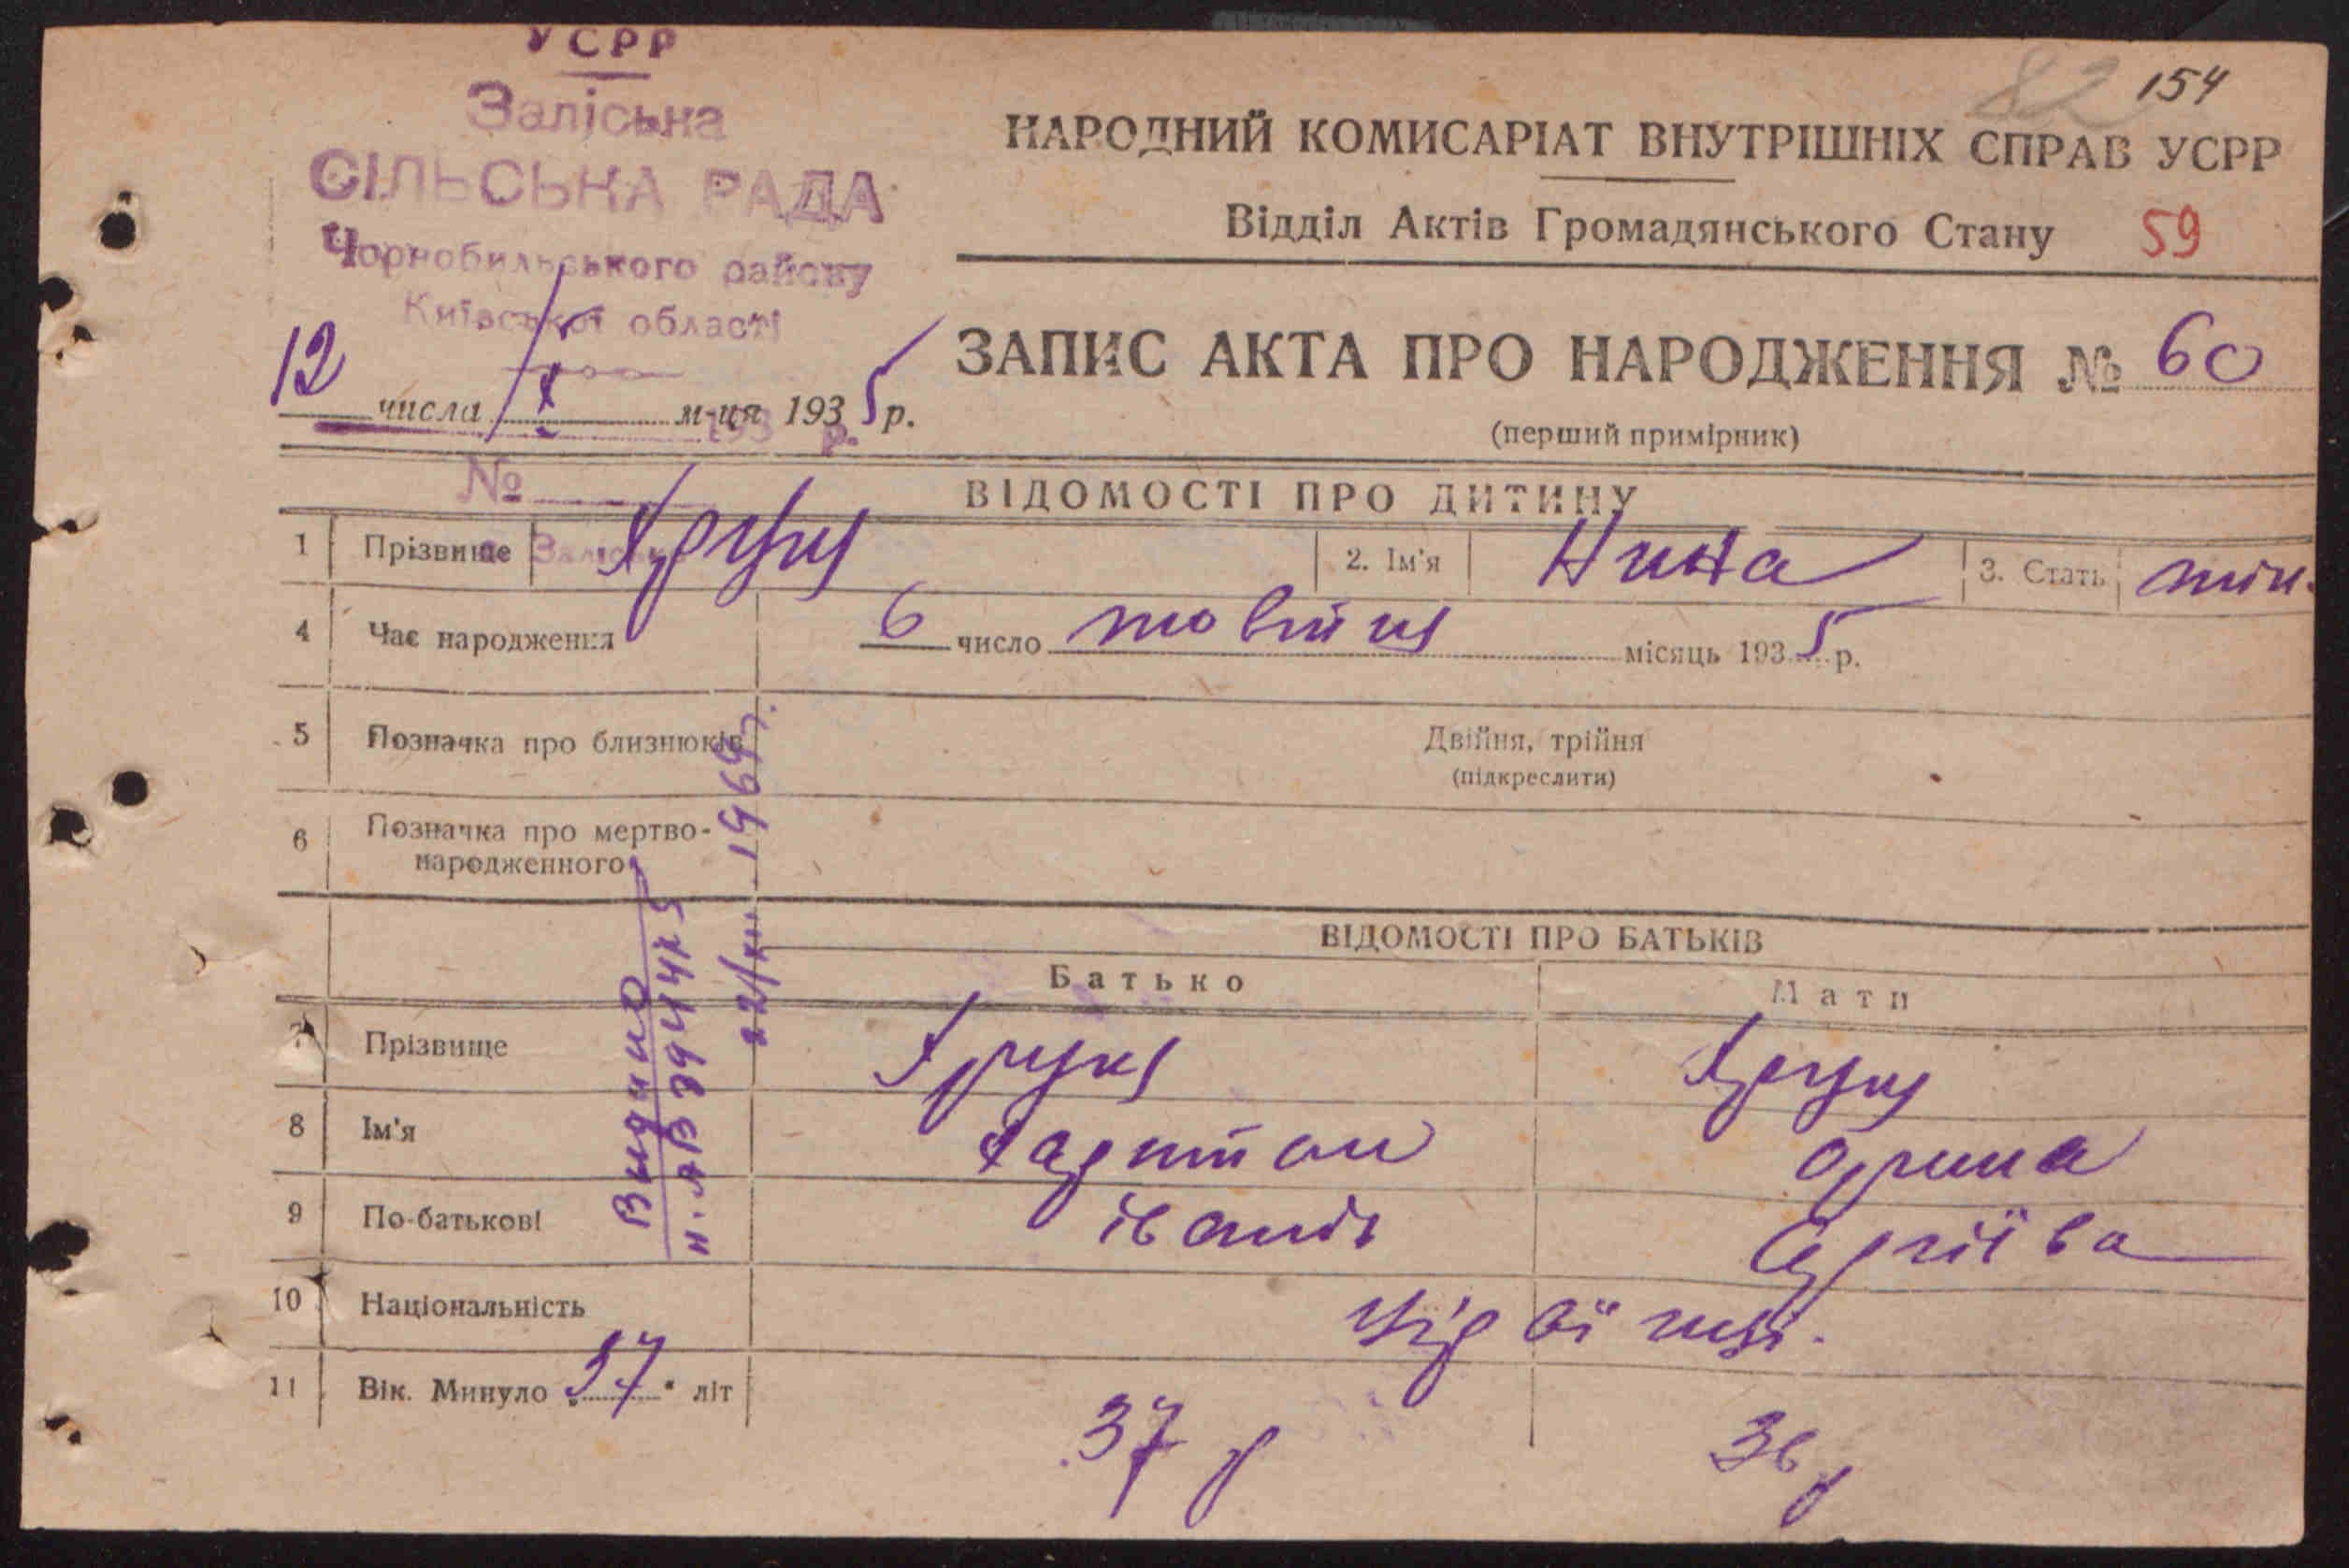 УСРР
Заліська
СІЛЬСЬКА РАДА
Чорнобильського району
Київської області
82 154
НАРОДНИЙ КОМИСАРІАТ ВНУТРІШНІХ СПРАВ УСРР
Відділ Актів Громадянського Стану 59
12 числа / X м-ця 1935 р.
193 р.
№
ЗАПИС АКТА ПРО НАРОДЖЕННЯ № 60
(перший примірник)
ВІДОМОСТІ ПРО ДИТИНУ
1 Прізвище 2. Ім'я Нина 3. Стать жін.
4 Час народження 6 число жовтня місяць 1935 р.
5 Позначка про близнюків Двійня, трійня
(підкреслити)
6 Позначка про мертво-
народженного
ВІДОМОСТІ ПРО БАТЬКІВ
Батько Мати
7 Прізвище
8 Ім'я Харитон Орина
9 По-батькові
10 Національність
11 Вік. Минуло 37 літ 37 р 36 р